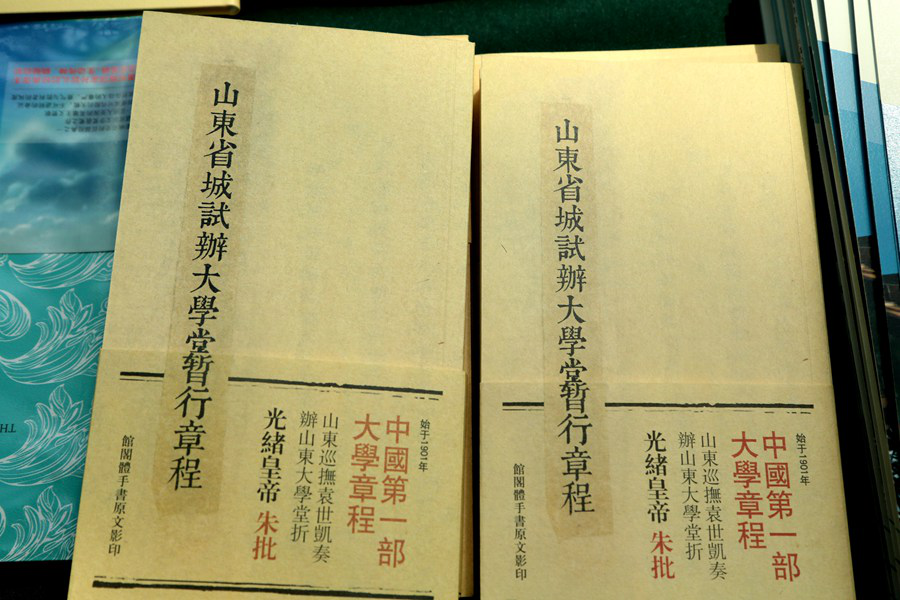 山東省城試辦大學堂暫行章程
始于1901年
中國第一部
大學章程
山東巡撫袁世凱奏
辦山東大學堂折
光緒皇帝 朱批
館閣體手書原文影印
山東省城試辦大學堂暫行章程
始于1901年
中國第一部
大學章程
山東巡撫袁世凱奏
辦山東大學堂折
光緒皇帝 朱批
館閣體手書原文影印